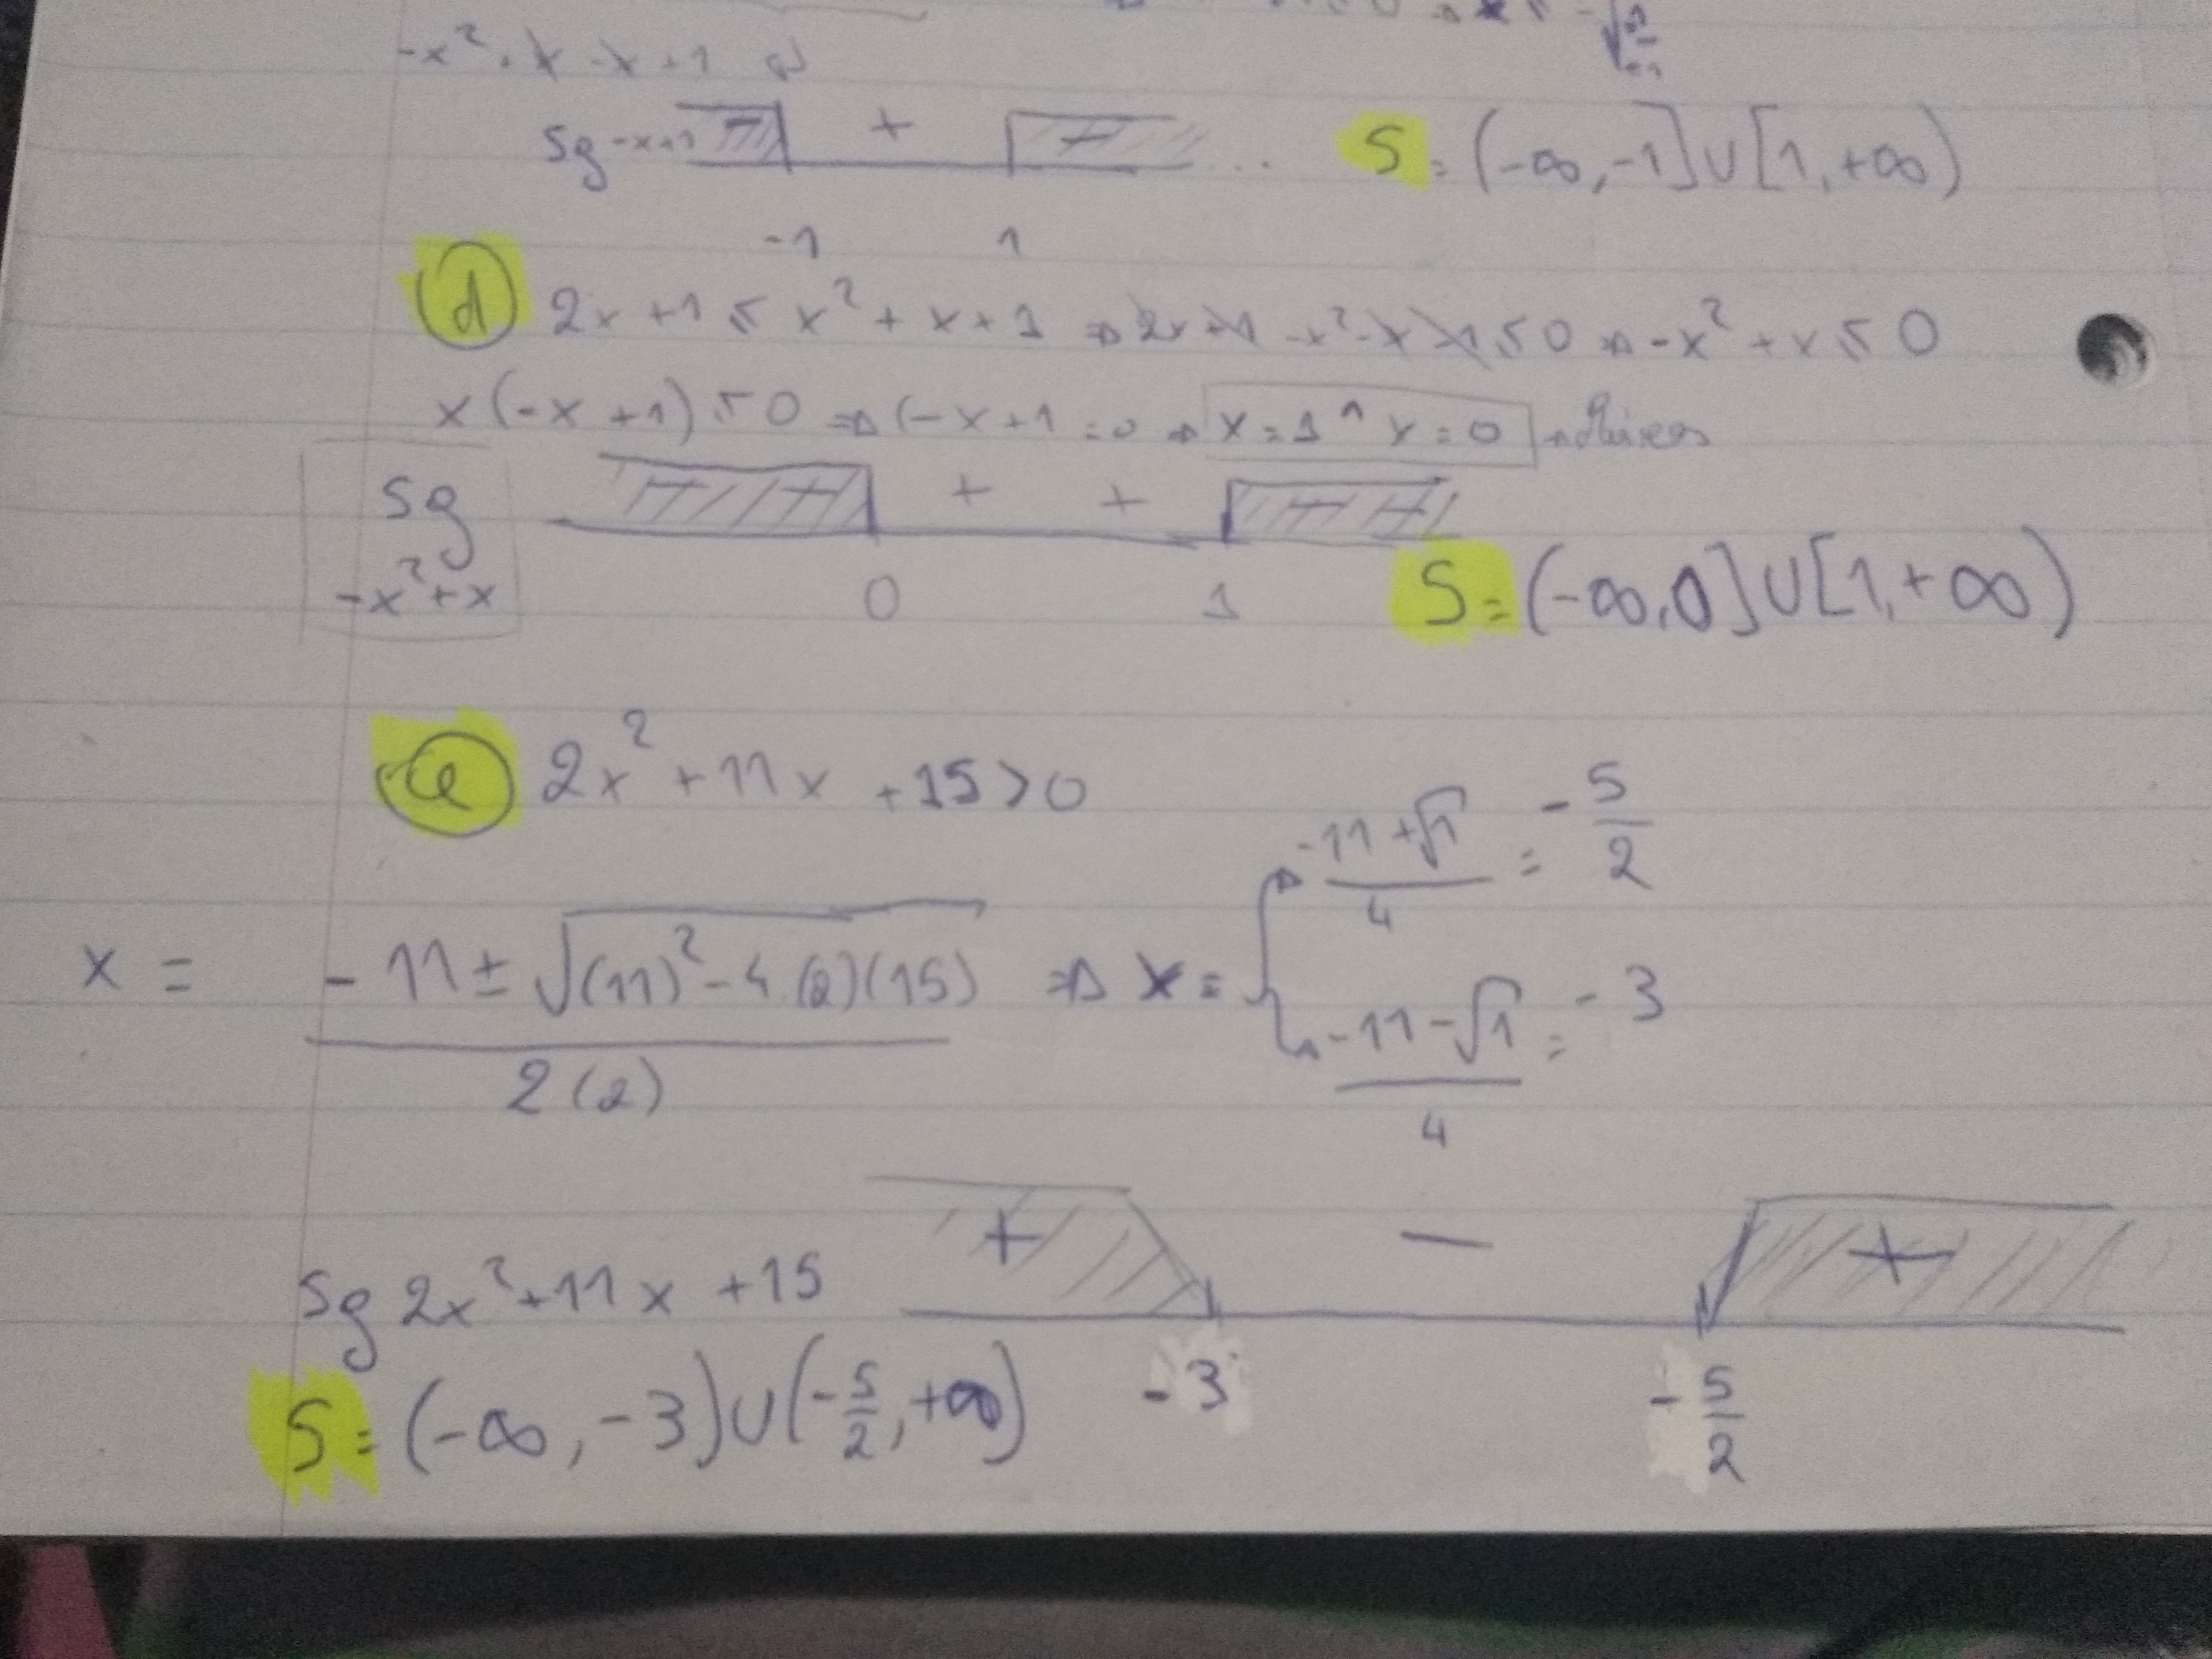 -x² + x - x + 1
sg -x²+1 - + - ... S = (-∞, -1] ∪ [1, +∞)
-1 1
d) 2x + 1 ≤ x² + x + 1 ⇒ 2x + 1 - x² - x - 1 ≤ 0 ⇒ -x² + x ≤ 0
x(-x + 1) ≤ 0 ⇒ (-x + 1 = 0 ⇒ x = 1 ^ x = 0
sg - - + + - -
-x² + x 0 1 S = (-∞, 0] ∪ [1, +∞)
e) 2x² + 11x + 15 > 0
-11 + √1 / 4 = -5/2
x = -11 ± √(11)² - 4.(2)(15) / 2(2) ⇒ x =
-11 - √1 / 4 = -3
sg 2x² + 11x + 15 + - +
S = (-∞, -3) ∪ (-5/2, +∞) -3 -5/2